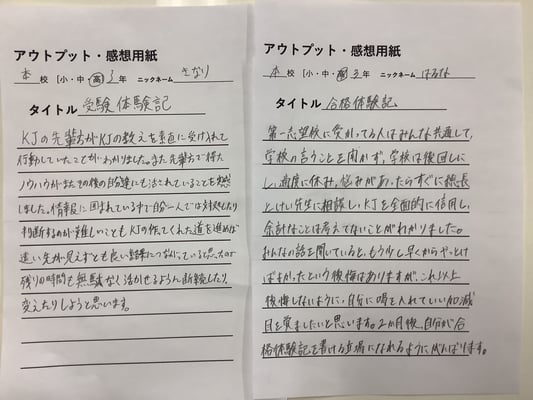 アウトプット・感想用紙
本 校 [小・中・高] 3 年 ニックネーム さなり
タイトル 受験体験記
KJの先輩方がKJの教えを素直に受け入れて
行動していたことがわかりました。また先輩方で得た
ノウハウがまたその後の自分達にも活されていることも実感
しました。情報に囲まれている中で自分一人では対処したり
判断するのが難しいこともKJの作てくれた道を進めば
遠い先が見えずとも良い結果につながっていると思ったので
残りの時間も無駄なく活かせるように断続したり、
変えたりしようと思います。
アウトプット・感想用紙
本 校 [小・中・高] 3 年 ニックネーム はるな
タイトル 合格体験記
第一志望校に受かってる人はみんな共通して、
学校の言うことを聞かず、学校は後回しに
し、適度に休み、悩みがあったらすぐに塾長
とけい先生に相談し、KJを全面的に信用し、
余計なことは考えてないことがわかりました。
みんなの話を聞いていると、もう少し早くからやっとけ
ばよかったという後悔はありますが、これ以上
後悔しないように、自分に喝を入れていい加減
目を覚ましたいと思います。2か月後、自分が合
格体験記を書ける立場になれるようにがんばります。